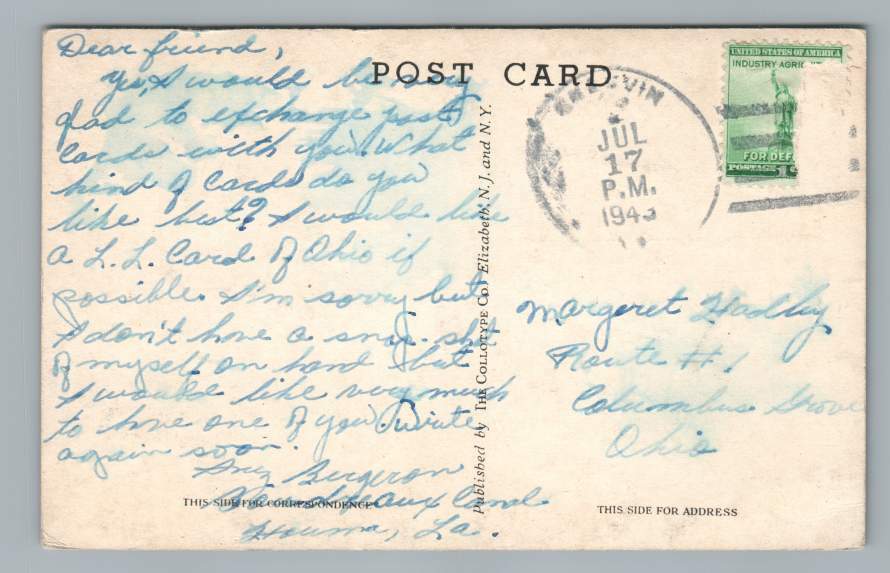 Dear friend,
Yes, I would be very
glad to exchange post
cards with you. What
kind of cards do you
like best? I would like
a L. L. Card of Ohio if
possible. I'm sorry but
I don't have a snap-shot
of myself on hand but
I would like very much
to have one of you. Write
again soon.
Bergeron
Houma, La.
THIS SIDE FOR CORRESPONDENCE
POST CARD
Published by THE COLLOTYPE CO., Elizabeth, N. J. and N. Y.
JUL
17
P.M.
1943
UNITED STATES OF AMERICA
INDUSTRY AGRIC
FOR DEF
POSTAGE 1
Margeret Hadley
Route #1
Columbus Grove
Ohio
THIS SIDE FOR ADDRESS